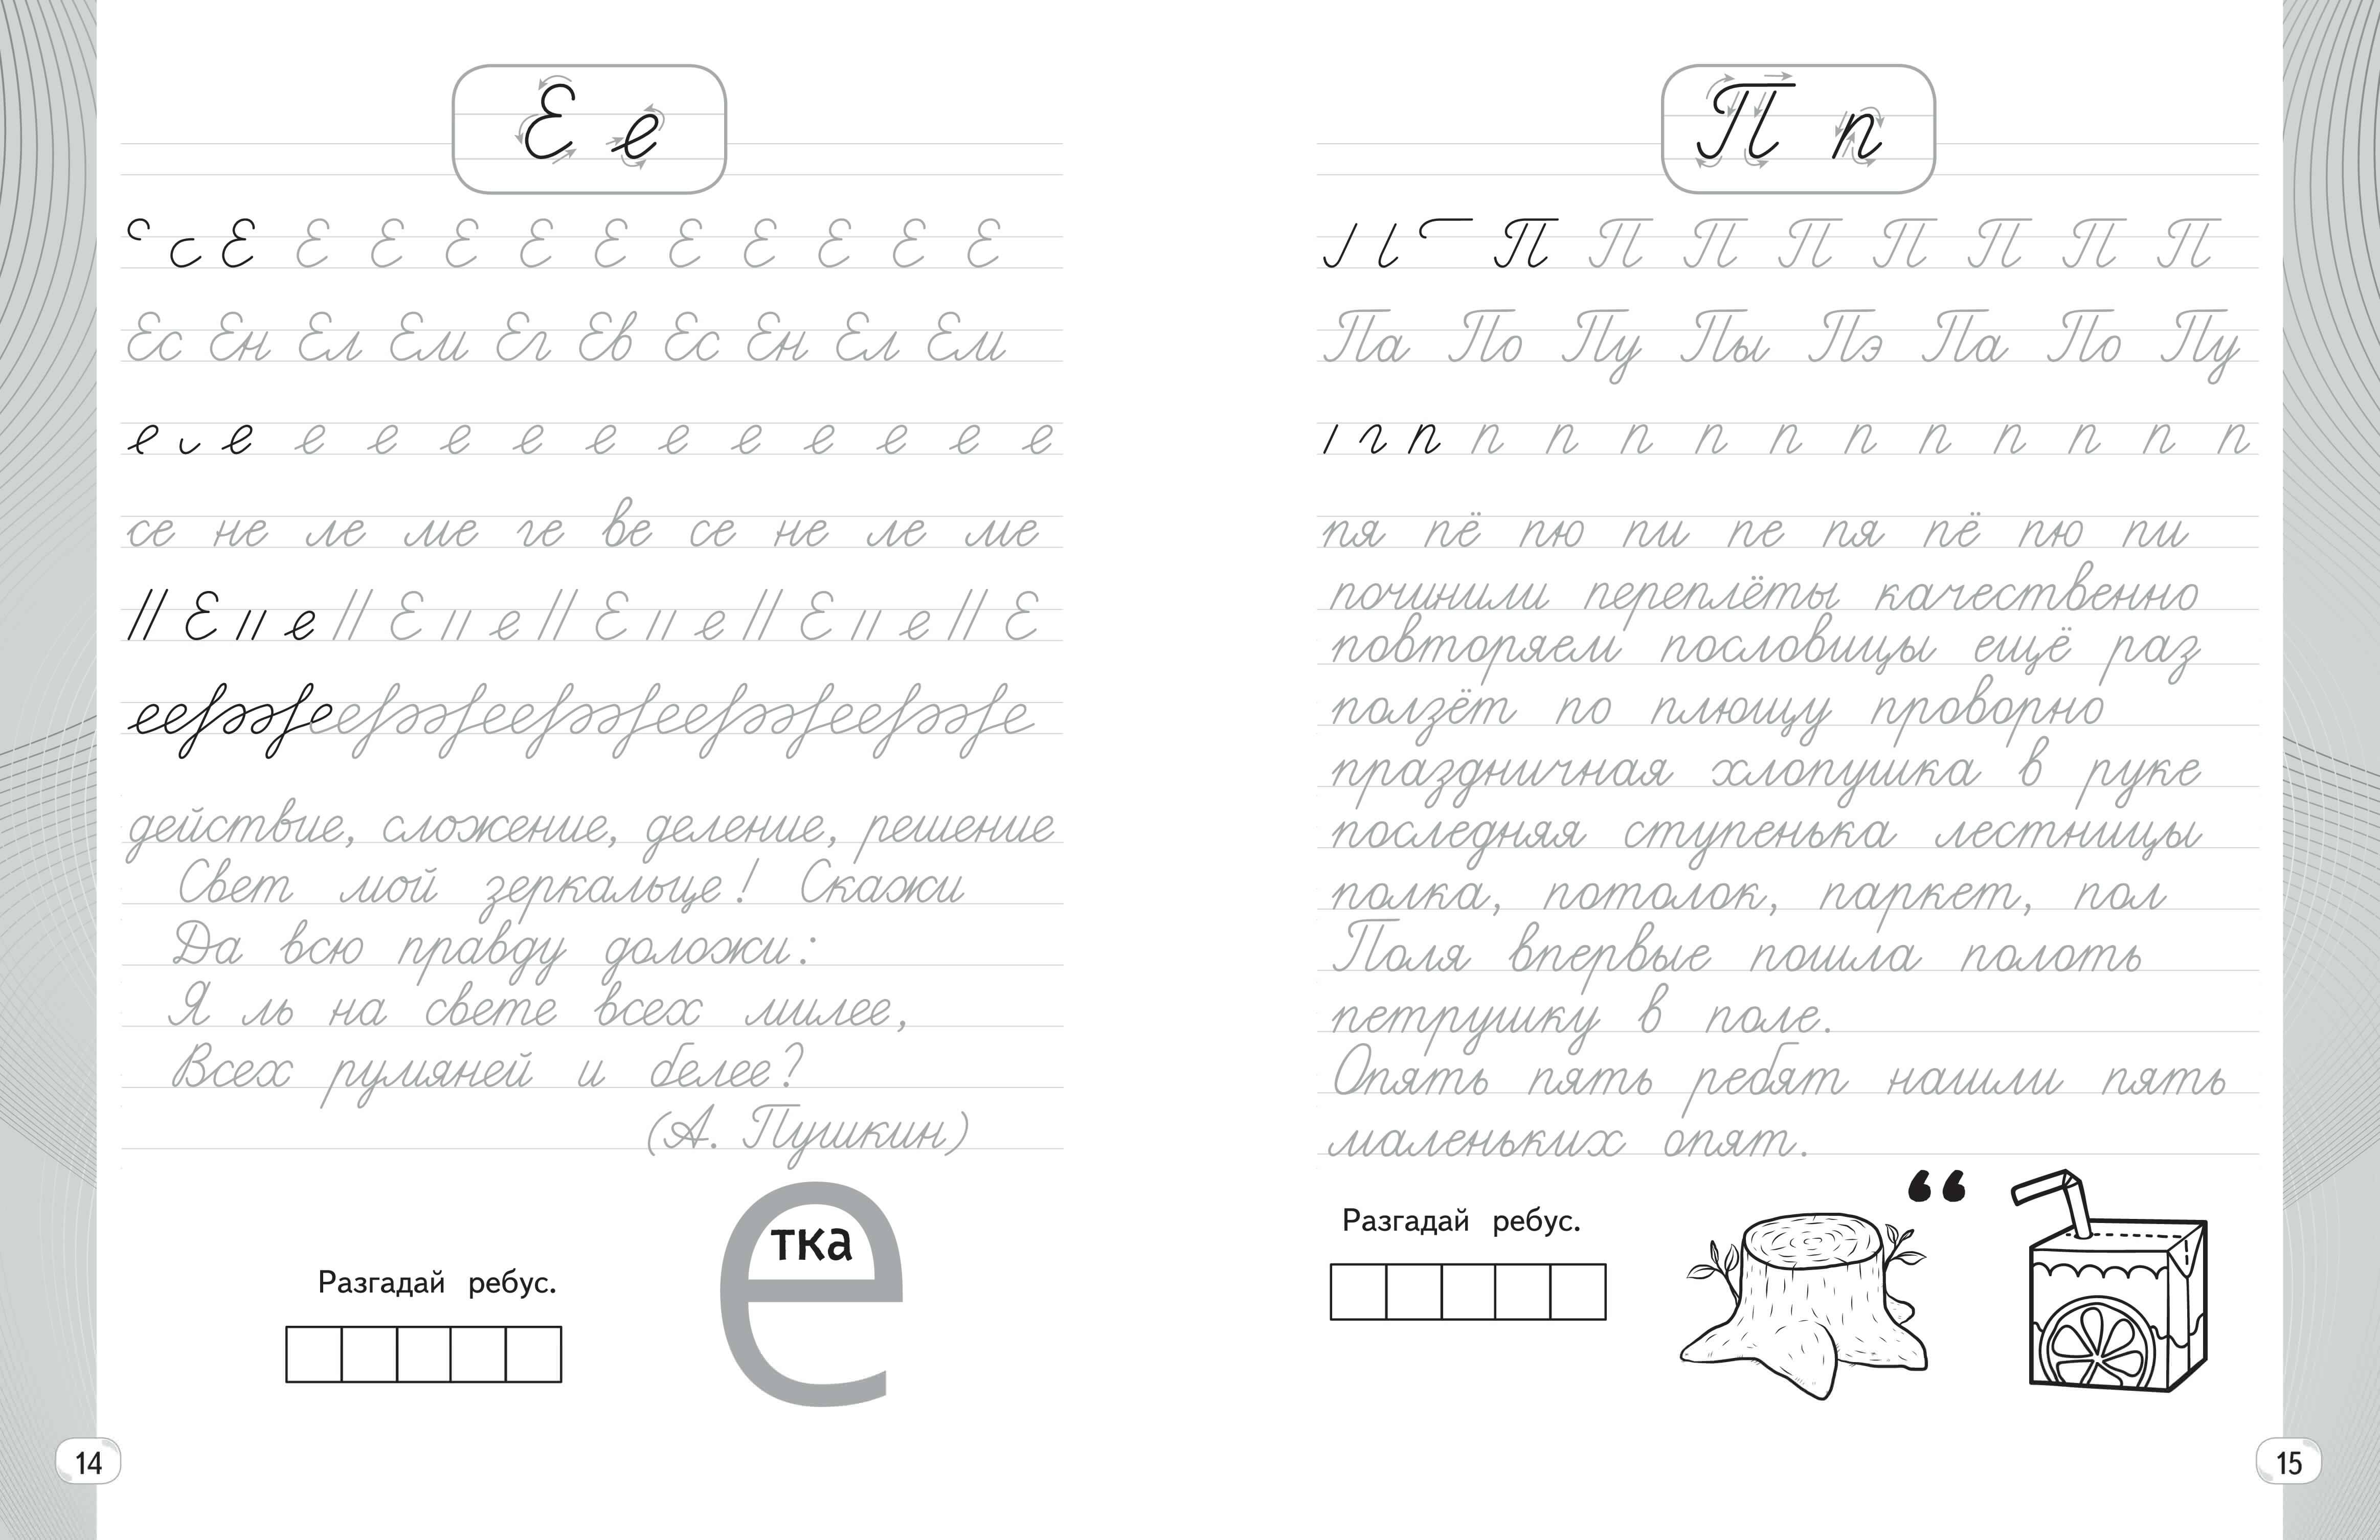 Е е
Е Е Е Е Е Е Е Е Е Е Е
Ес Ен Ел Ем Ег Ев Ес Ен Ел Ем
е е е е е е е е е е е е е
се не ле ме ге ве се не ле ме
// Е // е // Е // е // Е // е // Е // е // Е
действие, сложение, деление, решение
Свет мой зеркальце! Скажи
Да всю правду доложи:
Я ль на свете всех милее,
Всех румяней и белее?
(А. Пушкин)
тка
е
Разгадай ребус.
14
П п
П П П П П П П П
Па По Пу Пы Пэ Па По Пу
п п п п п п п п п п п п
пя пё пю пи пе пя пё пю пи
починили переплёты качественно
повторяем пословицы ещё раз
ползёт по плющу проворно
праздничная хлопушка в руке
последняя ступенька лестницы
полка, потолок, паркет, пол
Поля впервые пошла полоть
петрушку в поле.
Опять пять ребят нашли пять
маленьких опят.
Разгадай ребус.
“
15